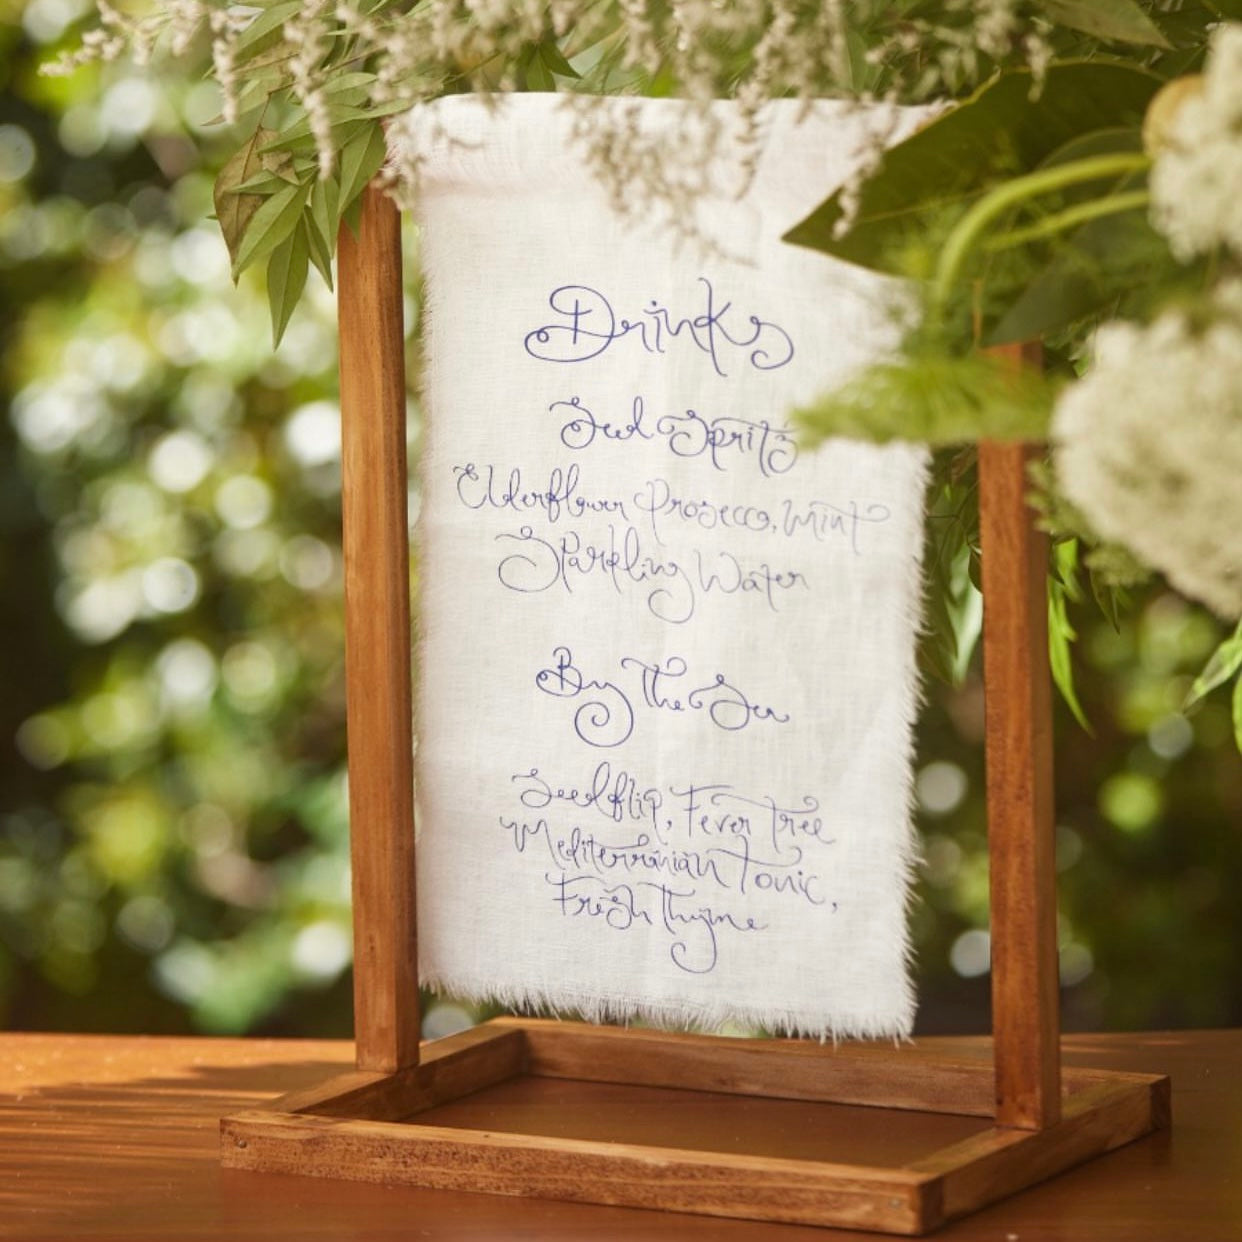 Drinks
Soul Spritz
Elderflower Prosecco, Mint
Sparkling Water
By The Sea
Seedlip, Fever Tree
Mediterranian Tonic,
Fresh Thyme